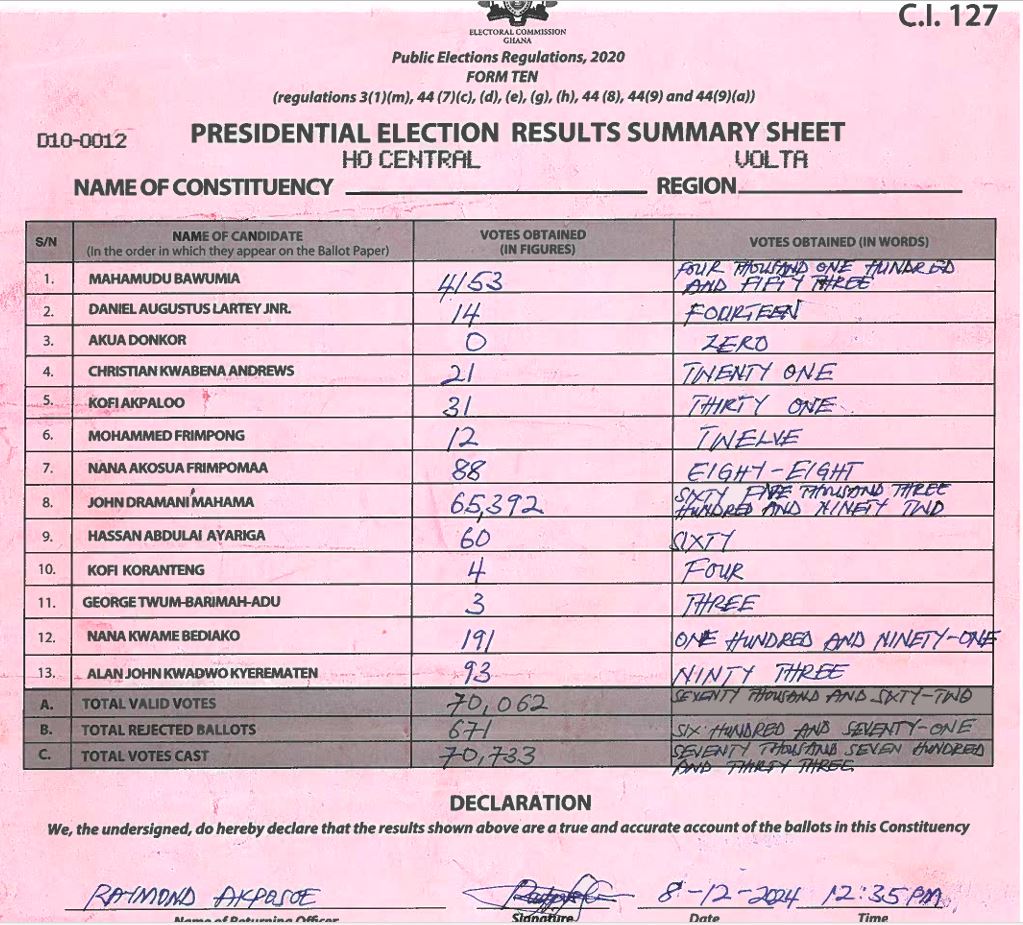 C.I. 127
ELECTORAL COMMISSION
GHANA
Public Elections Regulations, 2020
FORM TEN
(regulations 3(1)(m), 44 (7)(c), (d), (e), (g), (h), 44 (8), 44(9) and 44(9)(a))
D10-0012
PRESIDENTIAL ELECTION RESULTS SUMMARY SHEET
HO CENTRAL VOLTA
NAME OF CONSTITUENCY REGION
S/N NAME OF CANDIDATE (In the order in which they appear on the Ballot Paper) VOTES OBTAINED (IN FIGURES) VOTES OBTAINED (IN WORDS)
1. MAHAMUDU BAWUMIA 4153 FOUR THOUSAND ONE HUNDRED AND FIFTY THREE
2. DANIEL AUGUSTUS LARTEY JNR. 14 FOURTEEN
3. AKUA DONKOR 0 ZERO
4. CHRISTIAN KWABENA ANDREWS 21 TWENTY ONE
5. KOFI AKPALOO 31 THIRTY ONE
6. MOHAMMED FRIMPONG 12 TWELVE
7. NANA AKOSUA FRIMPOMAA 88 EIGHTY-EIGHT
8. JOHN DRAMANI MAHAMA 65,392 SIXTY FIVE THOUSAND THREE HUNDRED AND NINETY TWO
9. HASSAN ABDULAI AYARIGA 60 SIXTY
10. KOFI KORANTENG 4 FOUR
11. GEORGE TWUM-BARIMAH-ADU 3 THREE
12. NANA KWAME BEDIAKO 191 ONE HUNDRED AND NINETY-ONE
13. ALAN JOHN KWADWO KYEREMATEN 93 NINTY THREE
A. TOTAL VALID VOTES 70,062 SEVENTY THOUSAND AND SIXTY-TWO
B. TOTAL REJECTED BALLOTS 671 SIX HUNDRED AND SEVENTY-ONE
C. TOTAL VOTES CAST 70,733 SEVENTY THOUSAND SEVEN HUNDRED AND THIRTY THREE
DECLARATION
We, the undersigned, do hereby declare that the results shown above are a true and accurate account of the ballots in this Constituency
RAYMOND AKPOSOE 8-12-2024 12:35PM
Name of Returning Officer Signature Date Time